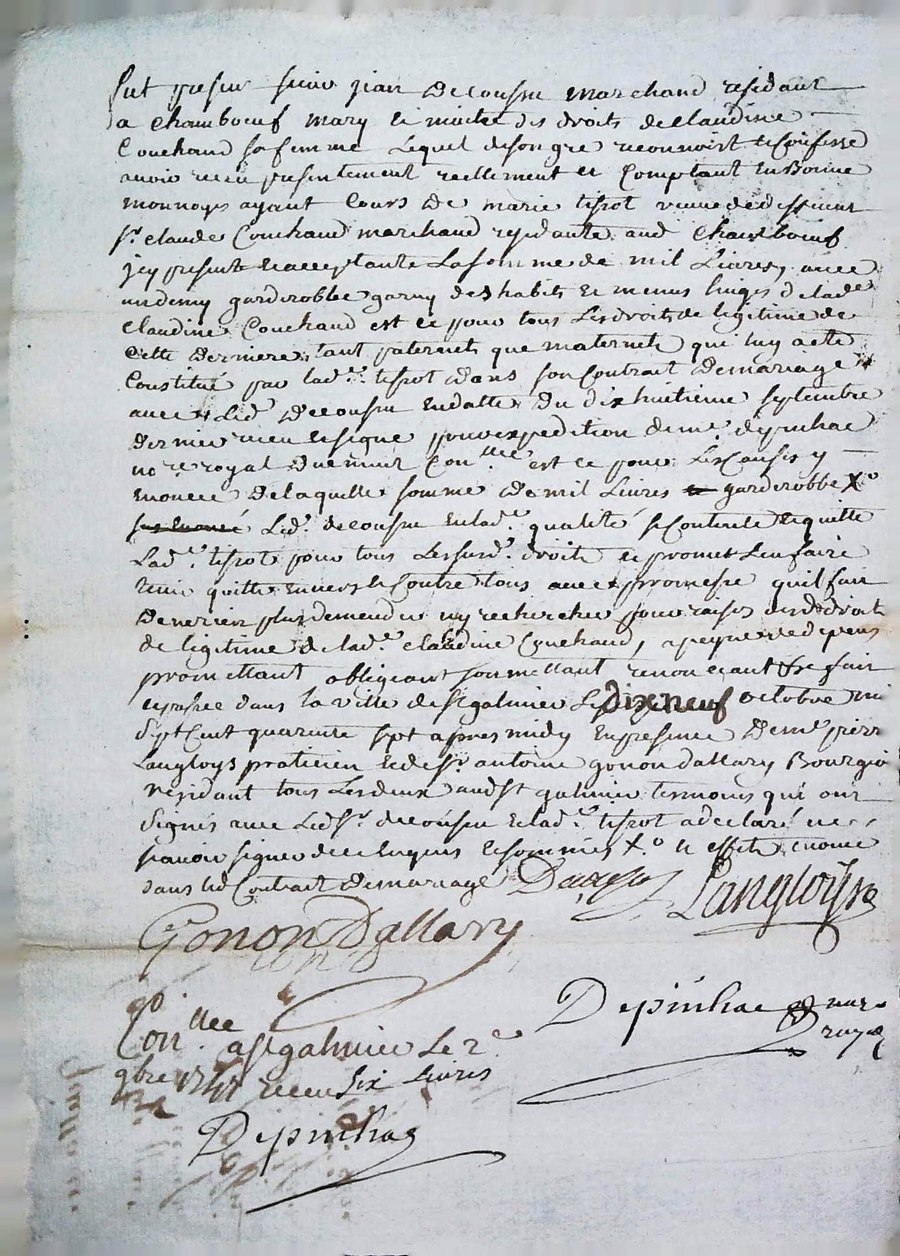 fut present sieur jean Decousu marchand residant
a chambœuf mary et maitre des droits de claudine
Couchaud sa femme Lequel de son gre reconnoist et confesse
avoir receu presentement reellement et Comptant En Bonne
monnoye ayant Cours De marie tissot veuve de deffunt
sr. claude Couchaud marchand residante aud Chambœuf
jcy presente et acceptante La somme de mil Livres, avec
un demy garderobbe garny des habits et menus linges de lade
claudine Couchaud est ce pour tous Les droits de legitime de
cette Derniere, tant paternels que maternels qui luy a ete
Constitué par lad.e tissot dans son Contrait De mariage
avec Led. Decousu En datte Du dix huitieme septembre
dernier receu et signe pour expedition de me. depinhac
no.re royal Duement Con.llee est ce pour Les Causes y
Enoncé De laquelle somme De mil Livres garderobbe X.o
Led. decousu En lad.e qualité se Contente et quitte
Lad.e tissot pour tous Les susd. droits et promet L'en faire
tenir quitte Envers et Contre tous avec promesse quil fait
De ne rien plus demender ny rechercher pour raison desd droit
de legitime de lad.e claudine Couchaud, a peyne de depens
promettant obligeant soumettant renonceant &c fait
et passé dans la ville de st galmier Le dix neuf octobre mil
sept Cent quarente sept apres midy En presence De me pierre
Langloys praticien et de sr. antoine gonon dallary Bourgeois
residant tous Les deux aud st galmier temoins qui ont
signés avec Led sr. decousu et lad.e tissot a declaré ne
scavoir signer de ce Enquis et sommés X.o et effets enoncé
dans led Contrait De mariage Langloys
Gonon Dallary
Depinhac
no.re royal
Con.llee a st galmier Le 2e
9bre 1747 receu six Livres
Depinhac